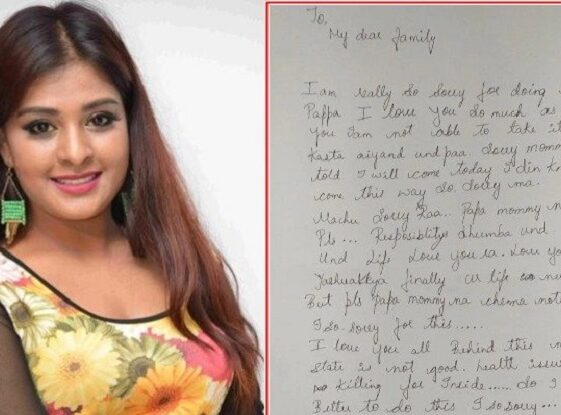 To,
My dear family
I am really so sorry for doing
Pappa I love you so much as
you I am not able to take it
Kasta aiyand und paa Sorry mommy
told I will come today I din
come this way so sorry ma.
Machu Sorry Raa.. Papa mommy
Pls... Resposiblitys dhumba und
Und Life Love you ra. Love yo
finally ur life
But pls Papa mommy na chenna not
I so sorry for this.....
I love you all Behind this
state is not good. health issu
Killing for Inside...... do I
Better to do this I so sorry...